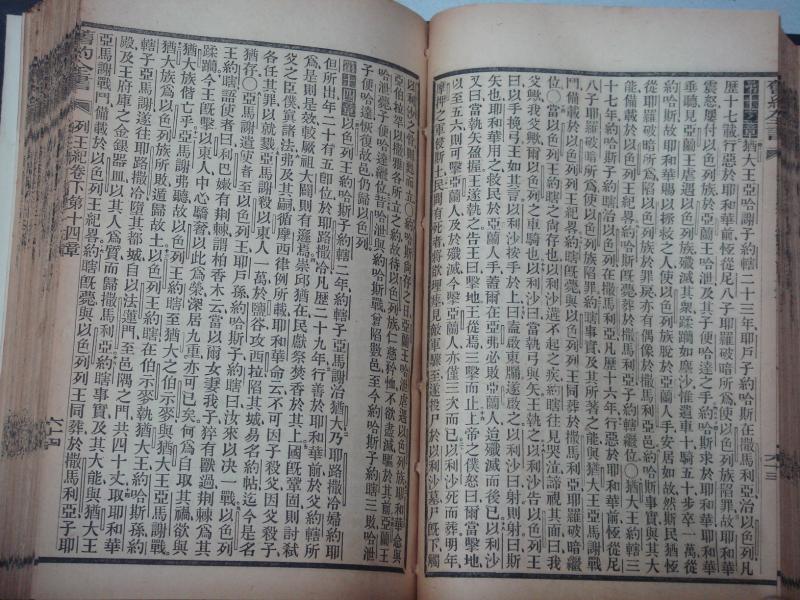 舊約全書
第十三章 猶大王亞哈謝子約哈斯二十三年耶戶子約哈斯在撒馬利亞治以色列凡
歷十七載行惡於耶和華前恆從尼八子耶羅破暗所為使以色列族陷罪故耶和華
震怒屢付以色列族於亞蘭王哈泄及其子便哈達之手約哈斯求於耶和華耶和華
垂聽見亞蘭王虐遇以色列族殲滅其衆蹂躪如塵沙惟遺車十騎五十步卒一萬從
約哈斯故耶和華賜以拯救之人使以色列族脫於亞蘭人手安居如故然斯民猶恆
從耶羅破暗所為陷以色列族於罪戾亦有偶像於撒馬利亞邑約哈斯事實與其大
能備載於以色列列王紀畧約哈斯旣薨葬於撒馬利亞子約轄繼位〇猶大王約轄三
十七年約哈斯子約轄治以色列在撒馬利亞凡歷十六年行惡於耶和華前恆從尼
八子耶羅破暗所為使以色列族陷罪約轄事實及其所著之能與猶大王亞馬謝戰
鬭備載於以色列列王紀畧約轄旣薨與以色列列王同葬於撒馬利亞耶羅破暗繼
位〇當以色列王約轄之尚存也以利沙遘不起之疾約轄往見哭泣諦視其面曰我
父歟我父歟爾以色列之車騎也以利沙曰當執弓與矢王執之以利沙告以色列王
曰以手挽弓王如其言以利沙按手於上曰盍啟東牖遂啟之以利沙曰射則射曰斯
矢也耶和華用之救民於亞蘭人手蓋爾在亞弗必敗亞蘭人迨殲滅而後已以利沙
又曰當執矢盈握王遂執之告王曰擊地王從焉三擊而止上帝之僕怒曰爾當擊地
以至五六則可擊亞蘭人及於殲滅今擊亞蘭人亦僅三次而已以利沙死而葬明年
摩押之軍侵斯土民間有死者將欲埋葬見敵軍驟至遂投尸於以利沙墓尸旣下觸
以利沙之骨則起而立〇約哈斯尚存之日亞蘭王哈泄虐遇以色列族耶和華念與
亞伯拉罕以撒雅各所立之約故待以色列族仁慈矜恤不欲盡滅驅於其前亞蘭王
哈泄薨子便哈達繼位昔哈泄與約哈斯戰曾陷數邑至今約哈斯子約轄三敗哈泄
子便哈達恢復故邑仍歸以色列
第十四章 以色列王約哈斯子約轄二年約轄子亞馬謝治猶大乃耶路撒冷婦約耶
但所出年二十有五卽位於耶路撒冷凡歷二十九年行善於耶和華前於父約轄所
為是則是效較厥祖大闢則有遜焉崇邱猶在民獻祭焚香於其上國旣鞏固則討弒
父之臣僕冀諸法弗及其嗣循摩西律例所載耶和華命云不可因子殺父因父殺子
各任其罪以就戮亞馬謝殺以東人一萬於鹽谷攻西拉陷其城易名約帖迄今是名
猶存〇亞馬謝遣使者至以色列王耶戶孫約哈斯子約轄曰汝來以決一戰以色列
王約轄語使者曰利巴嫩有荆棘謂柏香木云當以爾女妻我子猝有獸過荆棘為其
蹂躪今王旣擊以東人中心驕騖以此為榮深居九重亦可已矣何為自取其禍欲與
猶大族偕亡乎亞馬謝弗聽故以色列王約轄至猶大之伯示麥與猶大王亞馬謝戰
猶大族為以色列族所敗遁歸故土以色列王約轄在伯示麥執猶大王約哈斯孫約
轄子亞馬謝遂往耶路撒冷墮其都城自以法蓮門至邑隅之門共四十丈取耶和華
殿及王府庫之金銀器皿以其人為質而歸撒馬利亞約轄事實及其大能與猶大王
亞馬謝戰鬭備載於以色列列王紀畧約轄旣薨與以色列列王同葬於撒馬利亞子耶
舊約全書 列王紀卷下第十四章
六十四